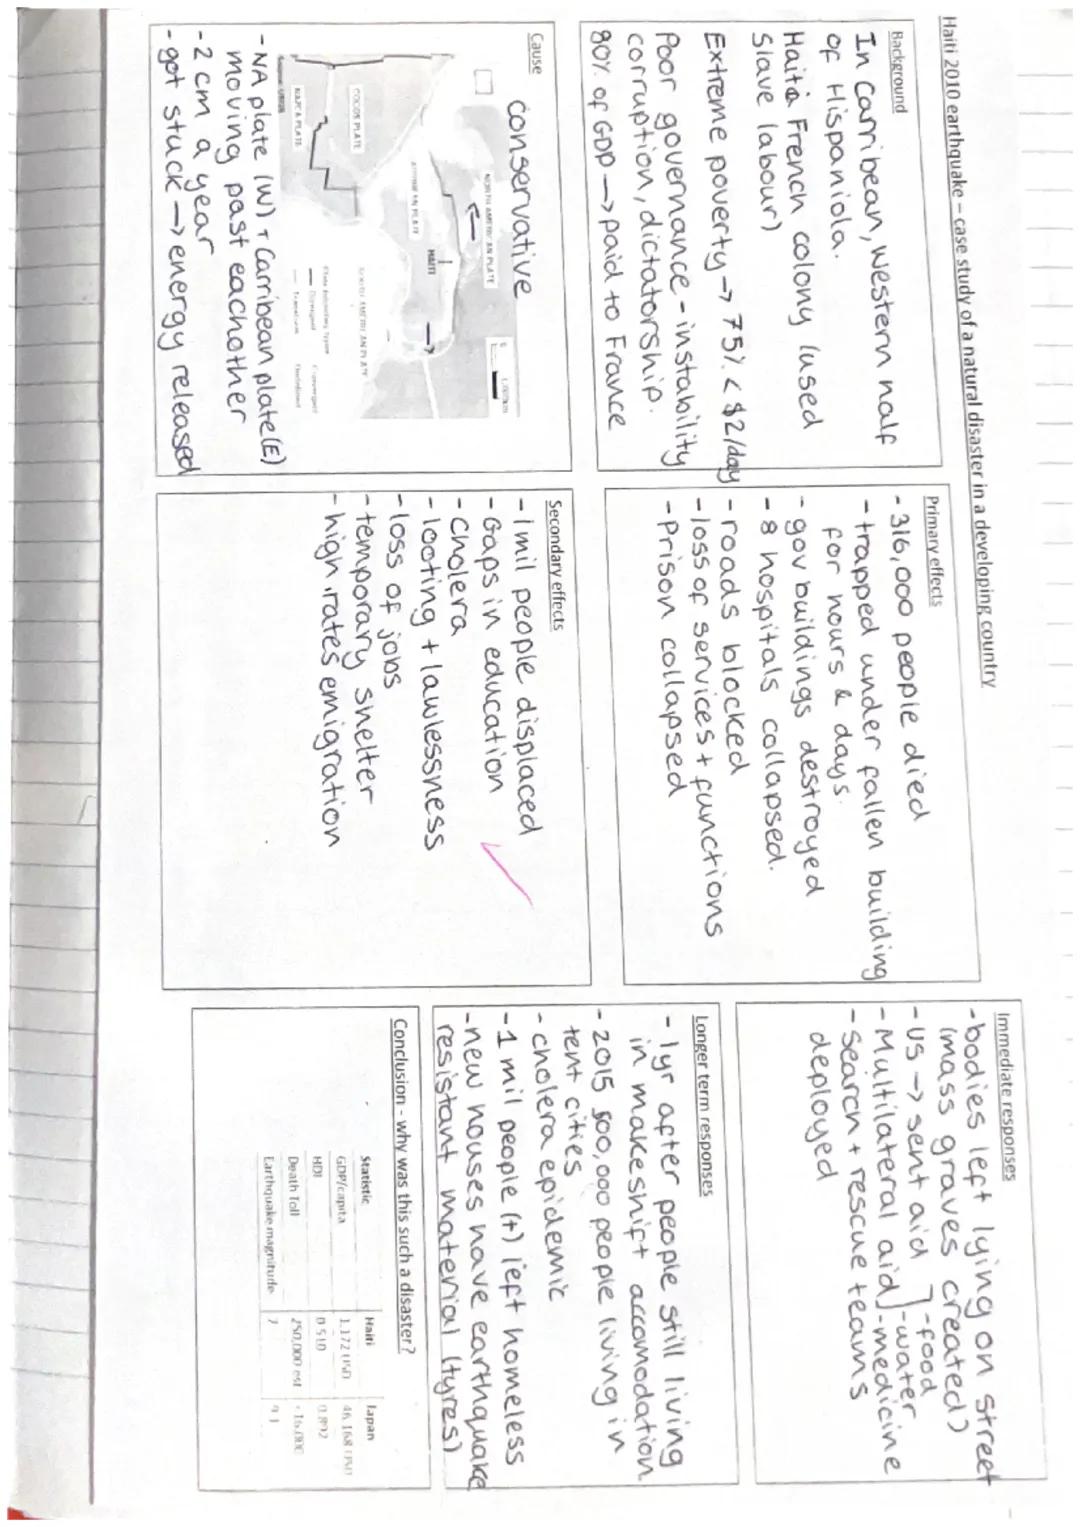 Haiti 2010 earthquake – case study of a natural disaster in a developing country
Background
In Carribean, western half
of Hispaniola.
Haiti a French colony (used
slave labour)
Extreme poverty → 75% < $2/day
Poor governance - instability
corruption, dictatorship.
80% of GDP → paid to France
Cause
conservative
NORTH AMERICAN PLATE
COCOS PLATE
HAITI
NAZCA PLATE
SOUTH AMERICAN PLATE
- NA plate (W) + Carribean plate (E)
moving past eachother
- 2 cm a year
- got stuck → energy released
Primary effects
- 316,000 people died
- trapped under fallen building
for hours & days.
- gov buildings destroyed
- 8 hospitals collapsed.
- roads blocked
- loss of services + functions
- prison collapsed
Secondary effects
- 1 mil people displaced
- Gaps in education
- cholera
- looting + lawlessness
- loss of jobs
- temporary shelter
- high rates emigration
Immediate responses
- bodies left lying on street
(mass graves created)
- US → sent aid - food
- Multilateral aid - water - medicine
- Search + rescue teams
deployed
Longer term responses
- 1yr after people still living
in makeshift accomodation
- 2015 500,000 people living in
tent cities
- cholera epidemic
- 1 mil people (+) left homeless
- new houses have earthquake
resistant material (tyres)
Conclusion - why was this such a disaster?
Statistic Haiti Japan
GDP/capita 1,172 USD 46,168 USD
HDI 0.510 0.892
Death Toll 250,000 est ~16,000
Earthquake magnitude 7 9.1